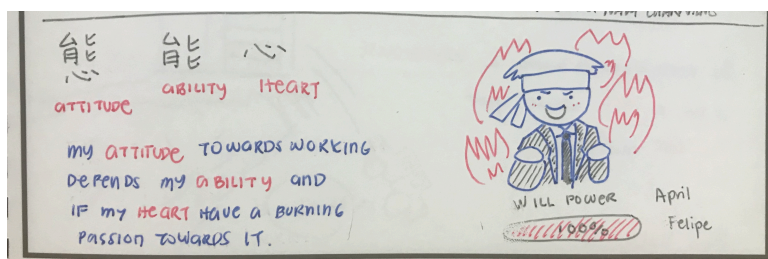 態 能 心
ATTITUDE ABILITY HEART
MY ATTITUDE TOWARDS WORKING
DEPENDS MY ABILITY AND
IF MY HEART HAVE A BURNING
PASSION TOWARDS IT.
WILL POWER
100%
April
Felipe